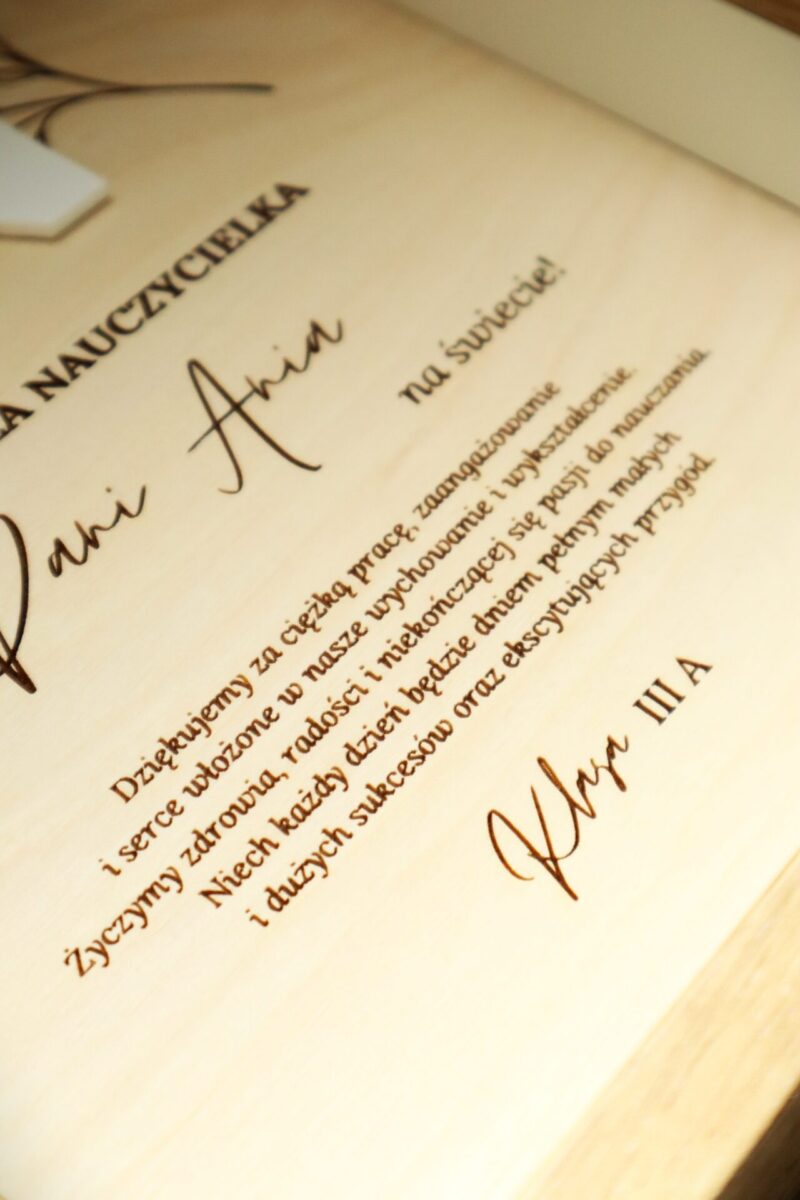 NAUCZYCIELKA
Pani Ania
na świecie!
Dziękujemy za ciężką pracę, zaangażowanie
i serce włożone w nasze wychowanie i wykształcenie.
Życzymy zdrowia, radości i niekończącej się pasji do nauczania.
Niech każdy dzień będzie dniem pełnym małych
i dużych sukcesów oraz ekscytujących przygód.
Klasa III A